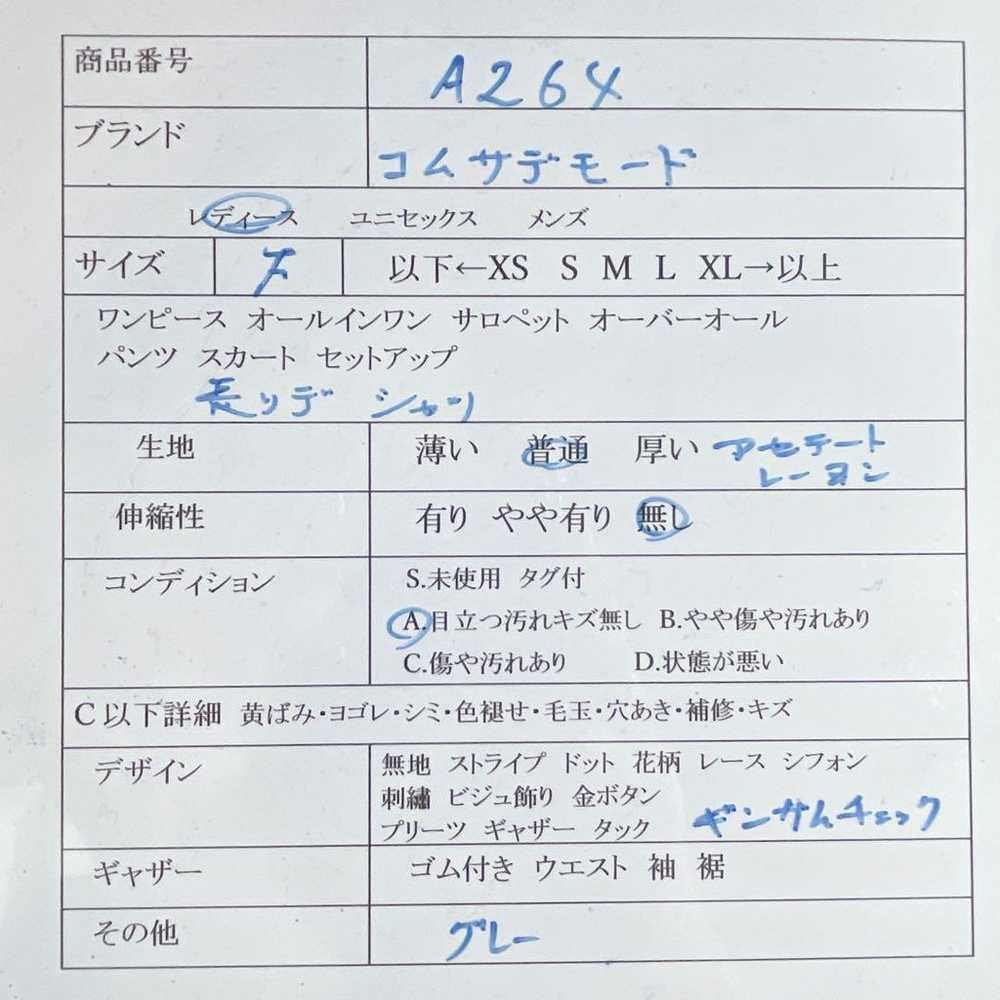 商品番号 A264
ブランド コムサデモード
レディース ユニセックス メンズ
サイズ 以下←XS S M L XL→以上
ワンピース オールインワン サロペット オーバーオール
パンツ スカート セットアップ
長ソデ シャツ
生地 薄い 普通 厚い アセテート
レーヨン
伸縮性 有り やや有り 無し
コンディション S.未使用 タグ付
A.目立つ汚れキズ無し B.やや傷や汚れあり
C.傷や汚れあり D.状態が悪い
C以下詳細 黄ばみ・ヨゴレ・シミ・色褪せ・毛玉・穴あき・補修・キズ
デザイン 無地 ストライプ ドット 花柄 レース シフォン
刺繡 ビジュ飾り 金ボタン
プリーツ ギャザー タック ギンガムチェック
ギャザー ゴム付き ウエスト 袖 裾
その他 グレー